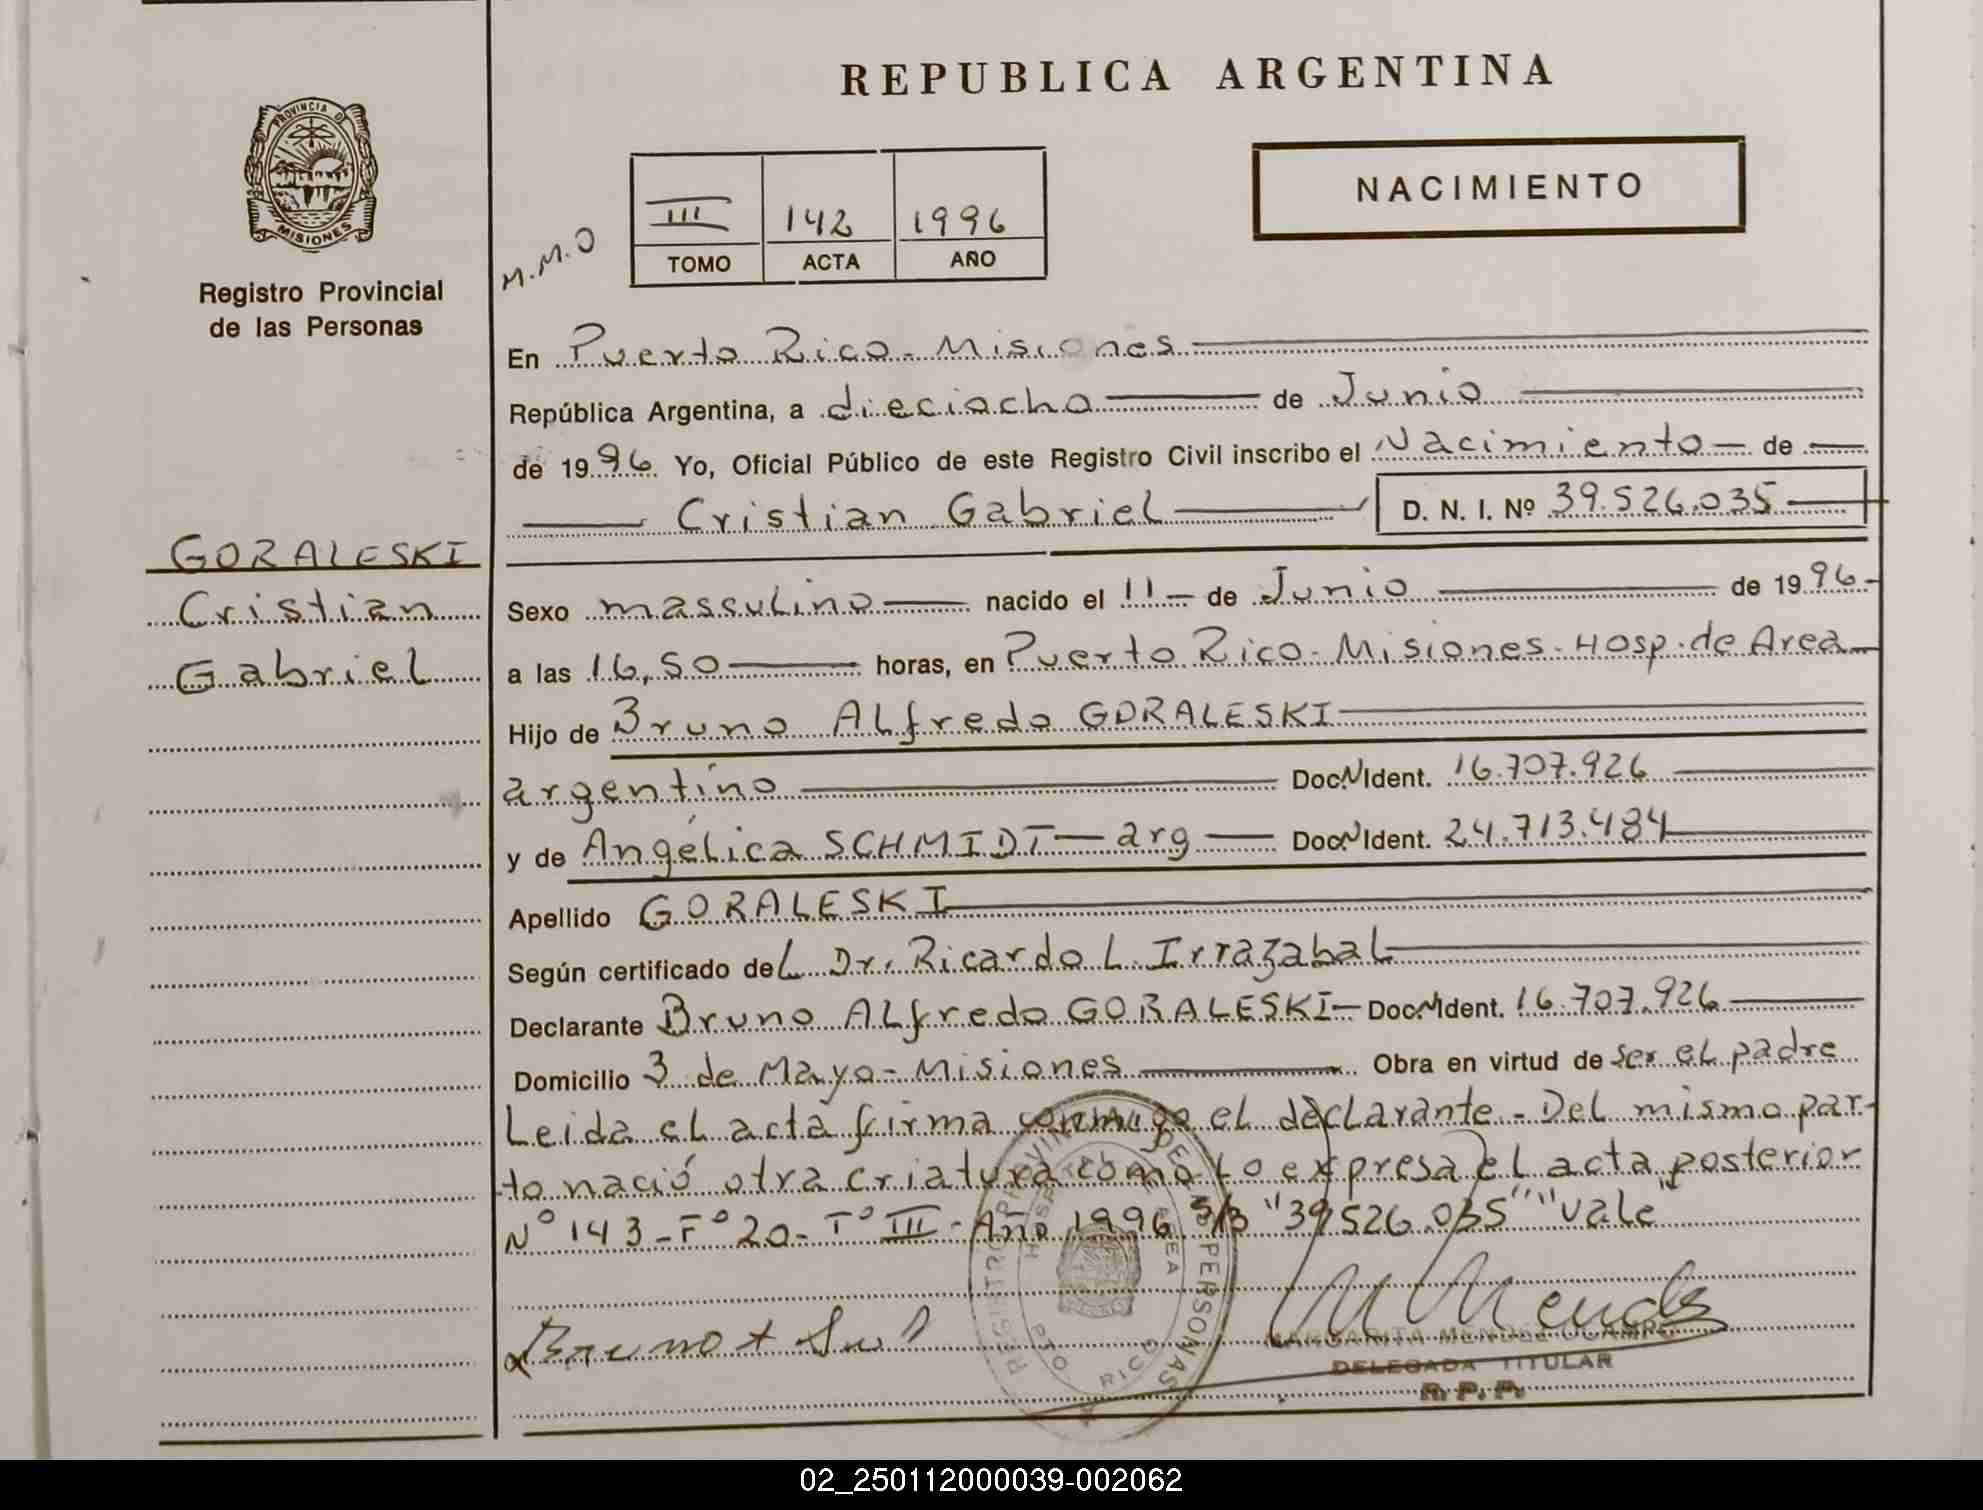 REPUBLICA ARGENTINA
PROVINCIA DE MISIONES
Registro Provincial
de las Personas
M.M.O
III 142 1996
TOMO ACTA AÑO
NACIMIENTO
En Puerto Rico - Misiones
República Argentina, a dieciocho de Junio
de 1996 Yo, Oficial Público de este Registro Civil inscribo el Nacimiento de
Cristian Gabriel D. N. I. Nº 39.526.035
GORALESKI
Cristian
Gabriel
Sexo masculino nacido el 11 de Junio de 1996
a las 16,50 horas, en Puerto Rico - Misiones - Hosp. de Area
Hijo de Bruno Alfredo GORALESKI
argentino Doc.N.Ident. 16.707.926
y de Angélica SCHMIDT - arg Doc.N.Ident. 24.713.484
Apellido GORALESKI
Según certificado del Dr. Ricardo L. Irrazabal
Declarante Bruno Alfredo GORALESKI - Doc.N.Ident. 16.707.926
Domicilio 3 de Mayo - Misiones Obra en virtud de ser el padre
Leida el acta firma conmigo el declarante - Del mismo par-
to nació otra criatura como lo expresa el acta posterior
Nº 143 - Fº 20 - Tº III - Año 1996 S/B "39.526.035" "Vale"
REGISTRO PROVINCIAL DE LAS PERSONAS
HOSPITAL DE AREA
PTO RICO
MARGARITA MENDEZ OCAMPO
DELEGADA TITULAR
R. P. P.
02_250112000039-002062